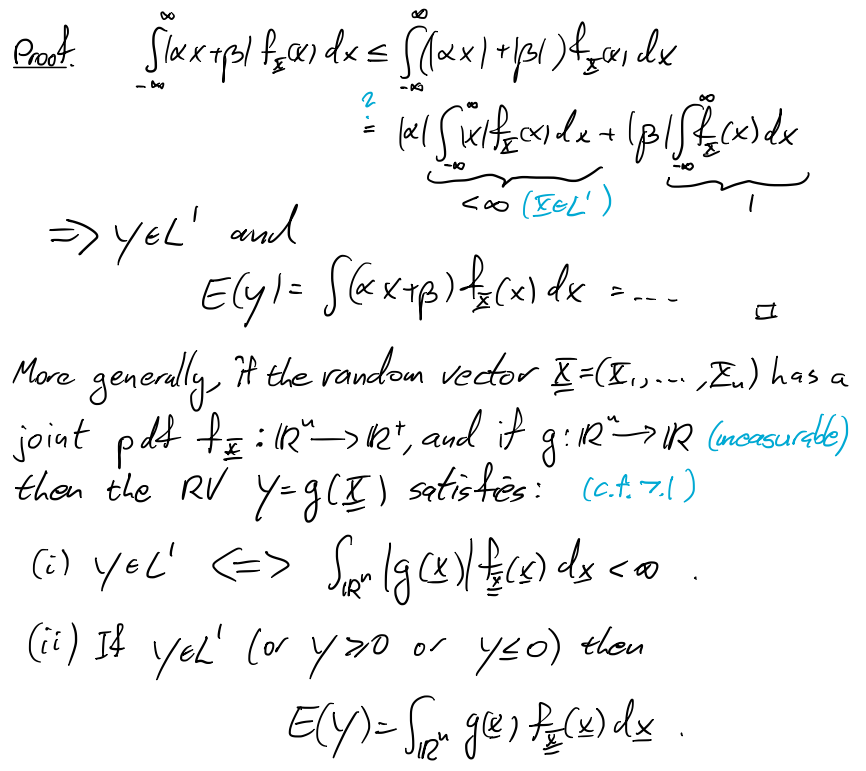 Proof. ∫_{-∞}^{∞} |αx+β| f_X(x) dx ≤ ∫_{-∞}^{∞} (|αx|+|β|) f_X(x) dx
?= |α| ∫_{-∞}^{∞} |x| f_X(x) dx + |β| ∫_{-∞}^{∞} f_X(x) dx
<∞ (X∈L¹) 1
⇒ Y∈L¹ and
E(Y) = ∫(αx+β) f_X(x) dx = .... □
More generally, if the random vector X=(X₁,...,Xₙ) has a
joint pdf f_X : ℝⁿ → ℝ⁺, and if g: ℝⁿ → ℝ (measurable)
then the RV Y=g(X) satisfies: (c.f. 7.1)
(i) Y∈L¹ <=> ∫_{ℝⁿ} |g(x)| f_X(x) dx < ∞ .
(ii) If Y∈L¹ (or Y≥0 or Y≤0) then
E(Y) = ∫_{ℝⁿ} g(x) f_X(x) dx .